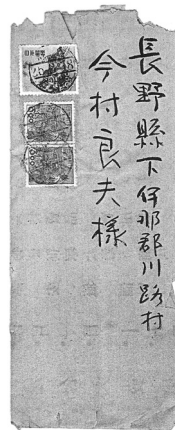 長野縣下伊那郡川路村
今村良夫様